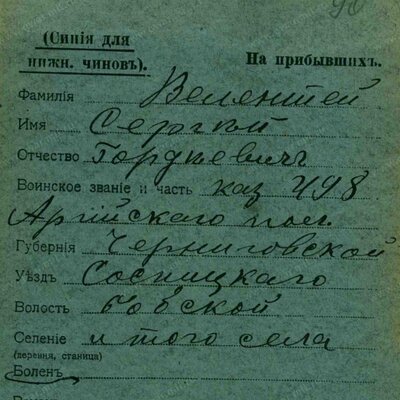 (Синія для
нижн. чиновъ).
На прибывшихъ.
Фамилія Велентей
Имя Сергѣй
Отчество Гордѣевичъ
Воинское званіе и часть каз 498
полк
Губернія Черниговской
Уѣздъ Сосницкаго
Волость
Селеніе и того села
(деревня, станица)
Боленъ